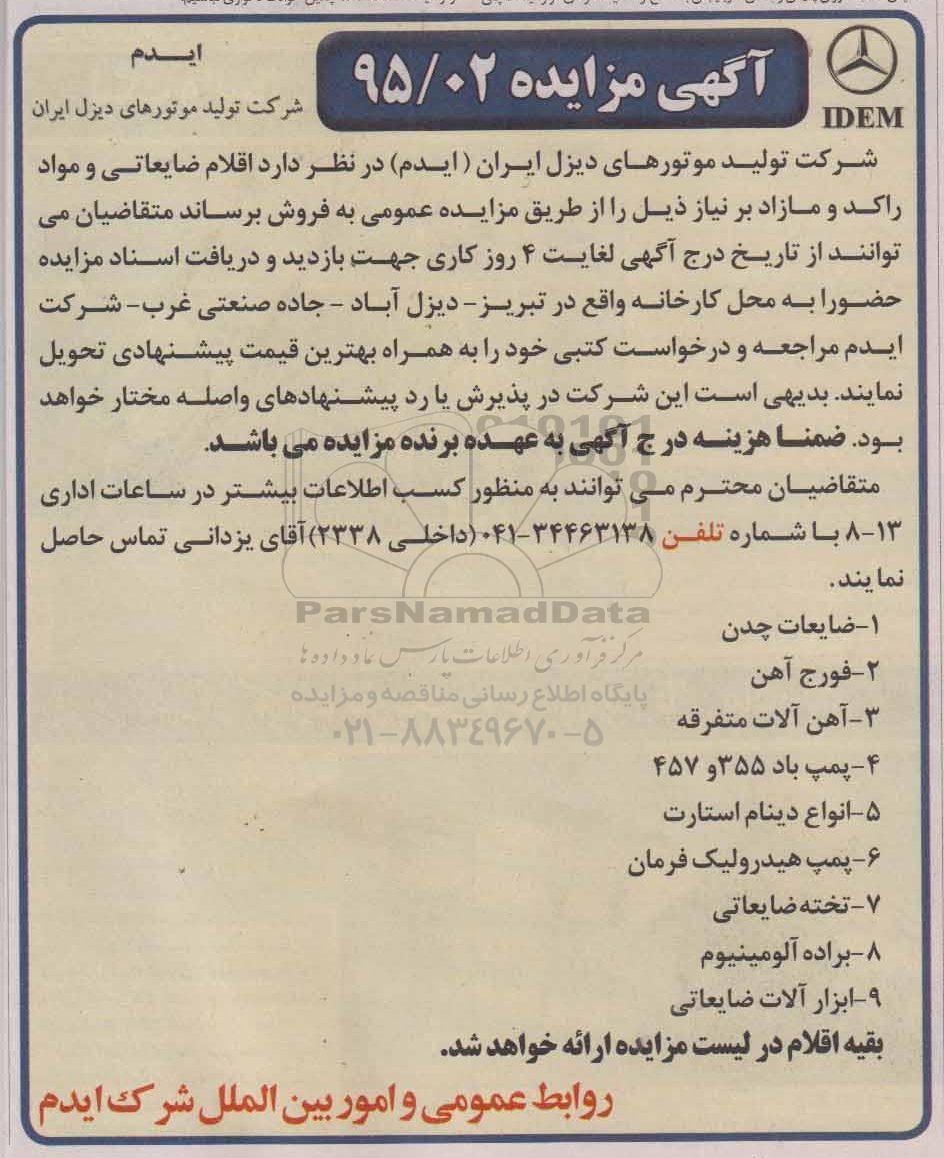 آگهی مزایده ۹۵/۰۲
IDEM
ایـدم
شرکت تولید موتورهای دیزل ایران
شرکت تولید موتورهای دیزل ایران (ایدم) در نظر دارد اقلام ضایعاتی و مواد
راکد و مازاد بر نیاز ذیل را از طریق مزایده عمومی به فروش برساند متقاضیان می
توانند از تاریخ درج آگهی لغایت ۴ روز کاری جهت بازدید و دریافت اسناد مزایده
حضورا به محل کارخانه واقع در تبریز- دیزل آباد - جاده صنعتی غرب- شرکت
ایدم مراجعه و درخواست کتبی خود را به همراه بهترین قیمت پیشنهادی تحویل
نمایند. بدیهی است این شرکت در پذیرش یا رد پیشنهادهای واصله مختار خواهد
بود. ضمنا هزینه درج آگهی به عهده برنده مزایده می باشد.
متقاضیان محترم می توانند به منظور کسب اطلاعات بیشتر در ساعات اداری
۸-۱۳ با شماره تلفن ۳۴۴۶۳۱۳۸-۰۴۱ (داخلی ۲۳۳۸) آقای یزدانی تماس حاصل
نمایند.
۱-ضایعات چدن
۲-فورج آهن
۳-آهن آلات متفرقه
۴-پمپ باد ۳۵۵و ۴۵۷
۵-انواع دینام استارت
۶-پمپ هیدرولیک فرمان
۷-تخته ضایعاتی
۸-براده آلومینیوم
۹-ابزار آلات ضایعاتی
بقیه اقلام در لیست مزایده ارائه خواهد شد.
روابط عمومی و امور بین الملل شرکت ایدم
ParsNamadData
مرکز فرآوری اطلاعات پارس نماد داده ها
پایگاه اطلاع رسانی مناقصه و مزایده
۰۲۱-۸۸۳۴۹۶۷۰-۵